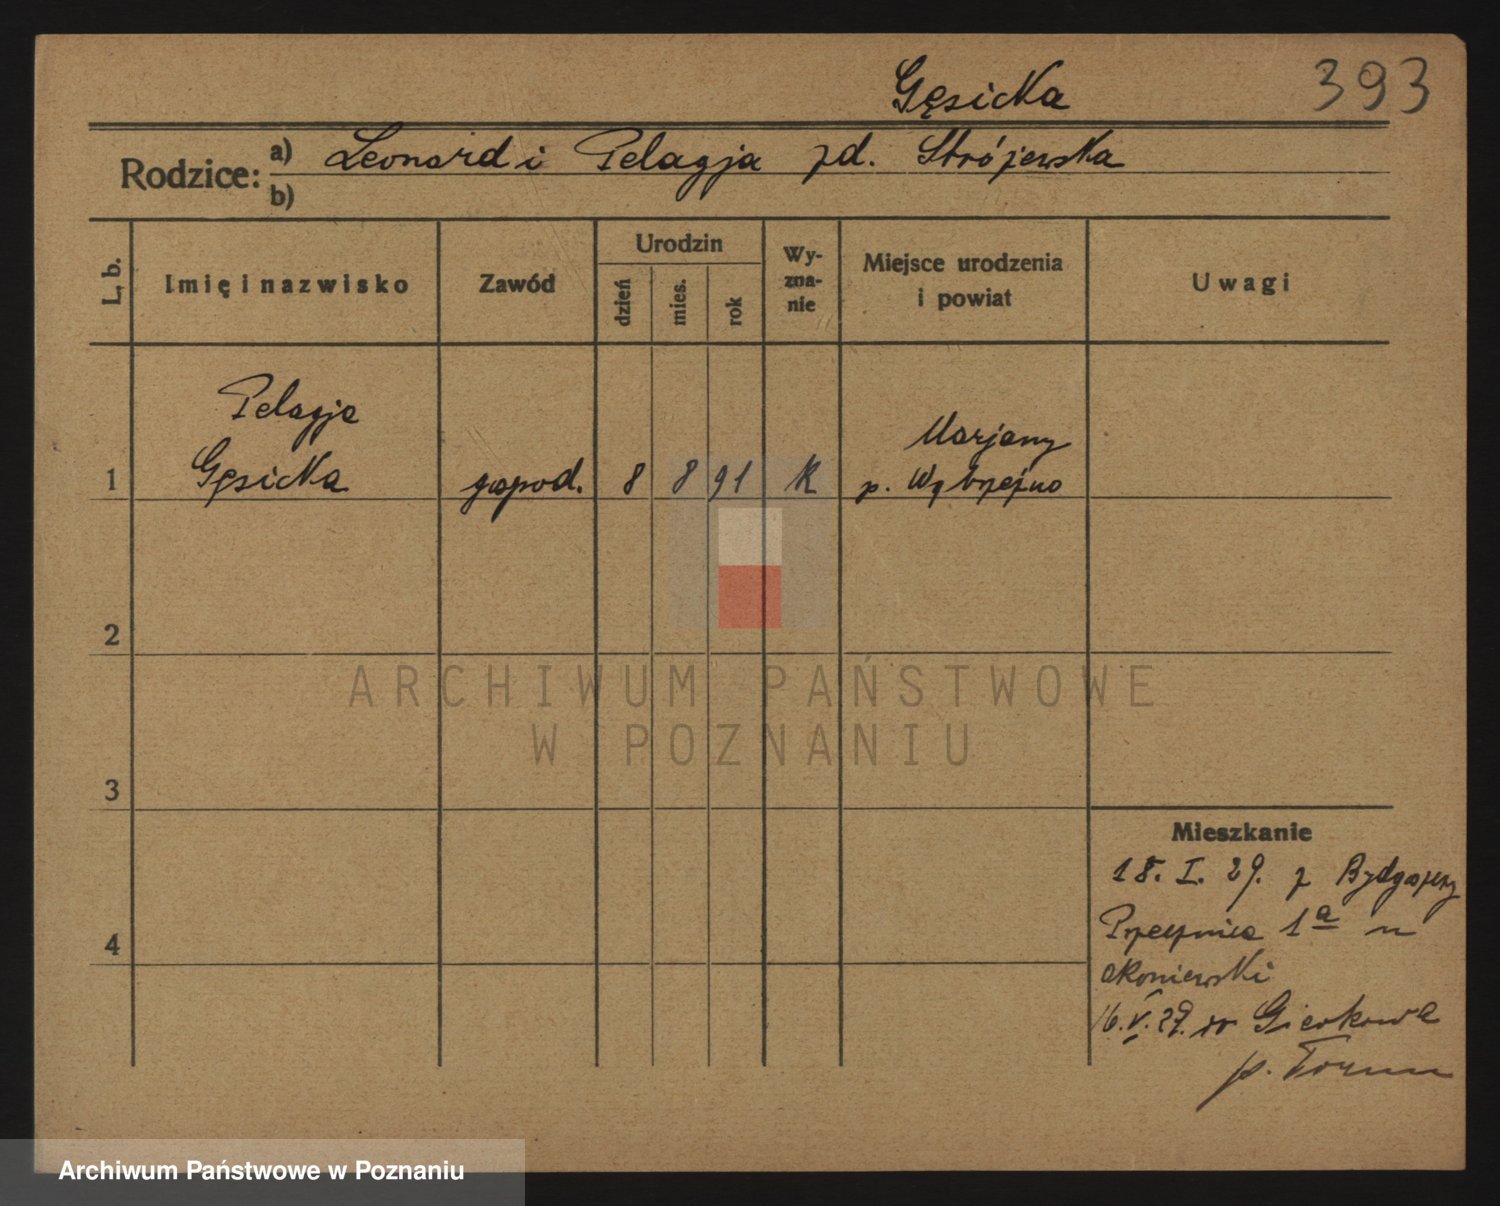 Gęsicka
393
Rodzice: a) Leonard i Pelagja zd. Strójewska
b)
L. b.
Imię i nazwisko
Zawód
Urodzin
dzień
mies.
rok
Wy-
zna-
nie
Miejsce urodzenia
i powiat
Uwagi
Pelagja
Gęsicka
1
gospod.
8
8
91
k
Marjany
p. Wąbrzeźno
2
ARCHIWUM PAŃSTWOWE
W POZNANIU
3
Mieszkanie
18. I. 29. z Bydgoszczy
1a
4
16. V. 29.
p. Toruń
Archiwum Państwowe w Poznaniu